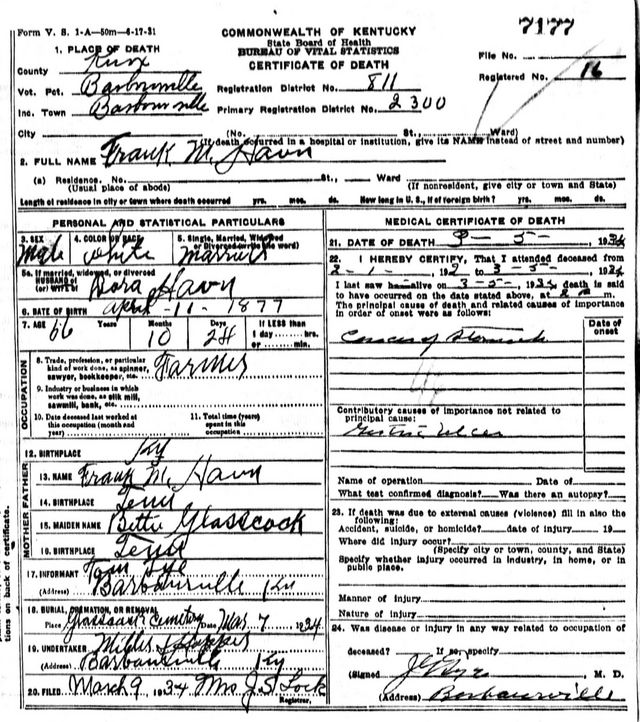 Form V. S. 1-A—50m—6-17-31
7177
COMMONWEALTH OF KENTUCKY
State Board of Health
BUREAU OF VITAL STATISTICS
CERTIFICATE OF DEATH
File No.
Registered No. 16
1. PLACE OF DEATH
County Knox
Vot. Pct. Barbourville Registration District No. 811
Inc. Town Barbourville Primary Registration District No. 2300
City (No. St., Ward)
(If death occurred in a hospital or institution, give its NAME instead of street and number)
2. FULL NAME Frank M. Hawn
(a) Residence. No. St., Ward
(Usual place of abode) (If nonresident, give city or town and State)
Length of residence in city or town where death occurred yrs. mos. ds. How long in U. S., if of foreign birth? yrs. mos. ds.
PERSONAL AND STATISTICAL PARTICULARS
3. SEX 4. COLOR OR RACE 5. Single, Married, Widowed
or Divorced (write the word)
Male White Married
5a. If married, widowed, or divorced
HUSBAND of
(or) WIFE of Dora Hawn
6. DATE OF BIRTH April -11- 1877
7. AGE 66 Years Months 10 Days 24 If LESS than
1 day hrs.
or min.
OCCUPATION
8. Trade, profession, or particular
kind of work done, as spinner,
sawyer, bookkeeper, etc. Farmer
9. Industry or business in which
work was done, as silk mill,
sawmill, bank, etc.
10. Date deceased last worked at
this occupation (month and
year)
11. Total time (years)
spent in this
occupation
12. BIRTHPLACE Ky
MOTHER FATHER
13. NAME Frank M. Hawn
14. BIRTHPLACE Tenn
15. MAIDEN NAME Bettie Glasscock
16. BIRTHPLACE Tenn
17. INFORMANT Tom
(Address) Barbourville Ky
18. BURIAL, CREMATION, OR REMOVAL
Place Glasscock Cemetery Date Mar 7 1934
19. UNDERTAKER Miller
(Address) Barbourville Ky
20. FILED March 9, 1934 Mrs J. S. Lock
Registrar.
MEDICAL CERTIFICATE OF DEATH
21. DATE OF DEATH 3 - 5 - , 1934
22. I HEREBY CERTIFY, That I attended deceased from
2 - 1 - , 192 to 3 - 5 - , 1934
I last saw h alive on 3 - 5 - , 1934 death is said
to have occurred on the date stated above, at 2 m.
The principal cause of death and related causes of importance
in order of onset were as follows:
Date of
onset
Cancer of Stomach
Contributory causes of importance not related to
principal cause:
Gastric Ulcer
Name of operation Date of
What test confirmed diagnosis? Was there an autopsy?
23. If death was due to external causes (violence) fill in also the
following:
Accident, suicide, or homicide? date of injury 19
Where did injury occur?
(Specify city or town, county, and State)
Specify whether injury occurred in industry, in home, or in
public place.
Manner of injury
Nature of injury
24. Was disease or injury in any way related to occupation of
deceased? If so, specify
(Signed M. D.
(Address) Barbourville
tions on back of certificate.